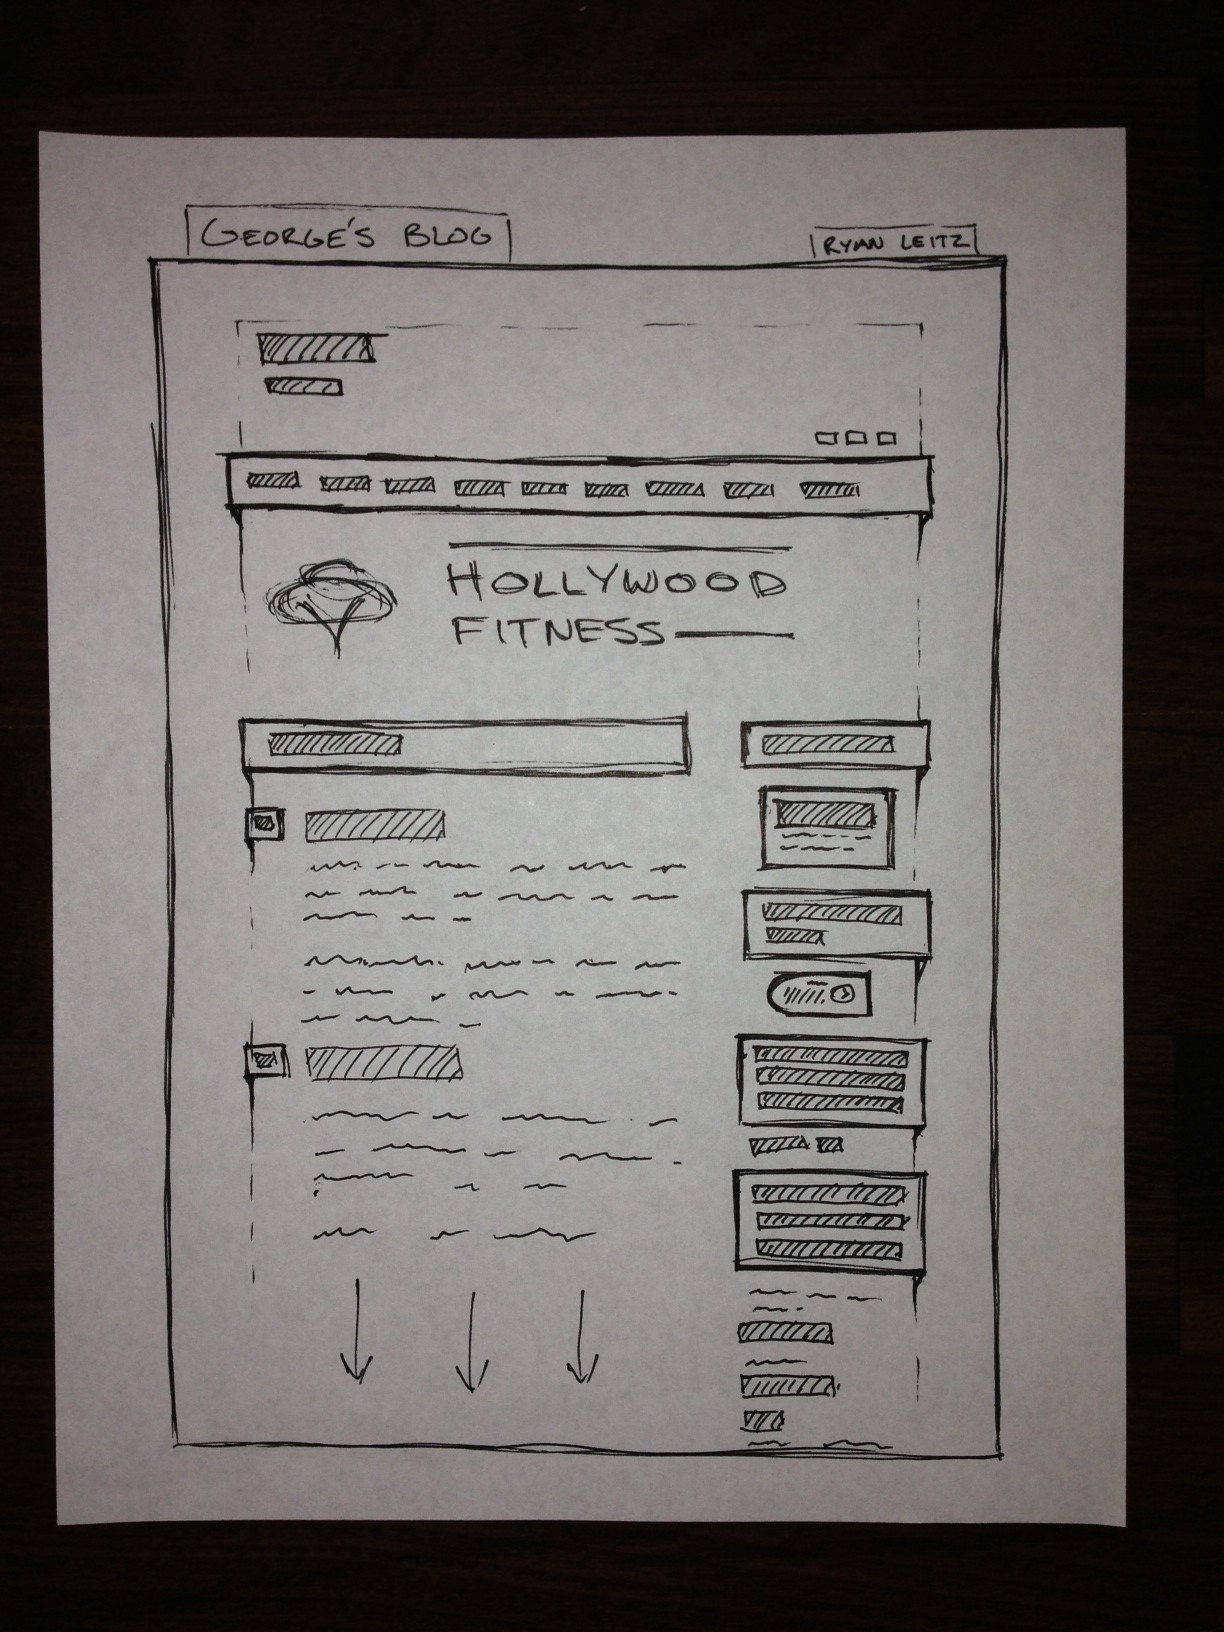 GEORGE'S BLOG
RYAN LEITZ
HOLLYWOOD
FITNESS